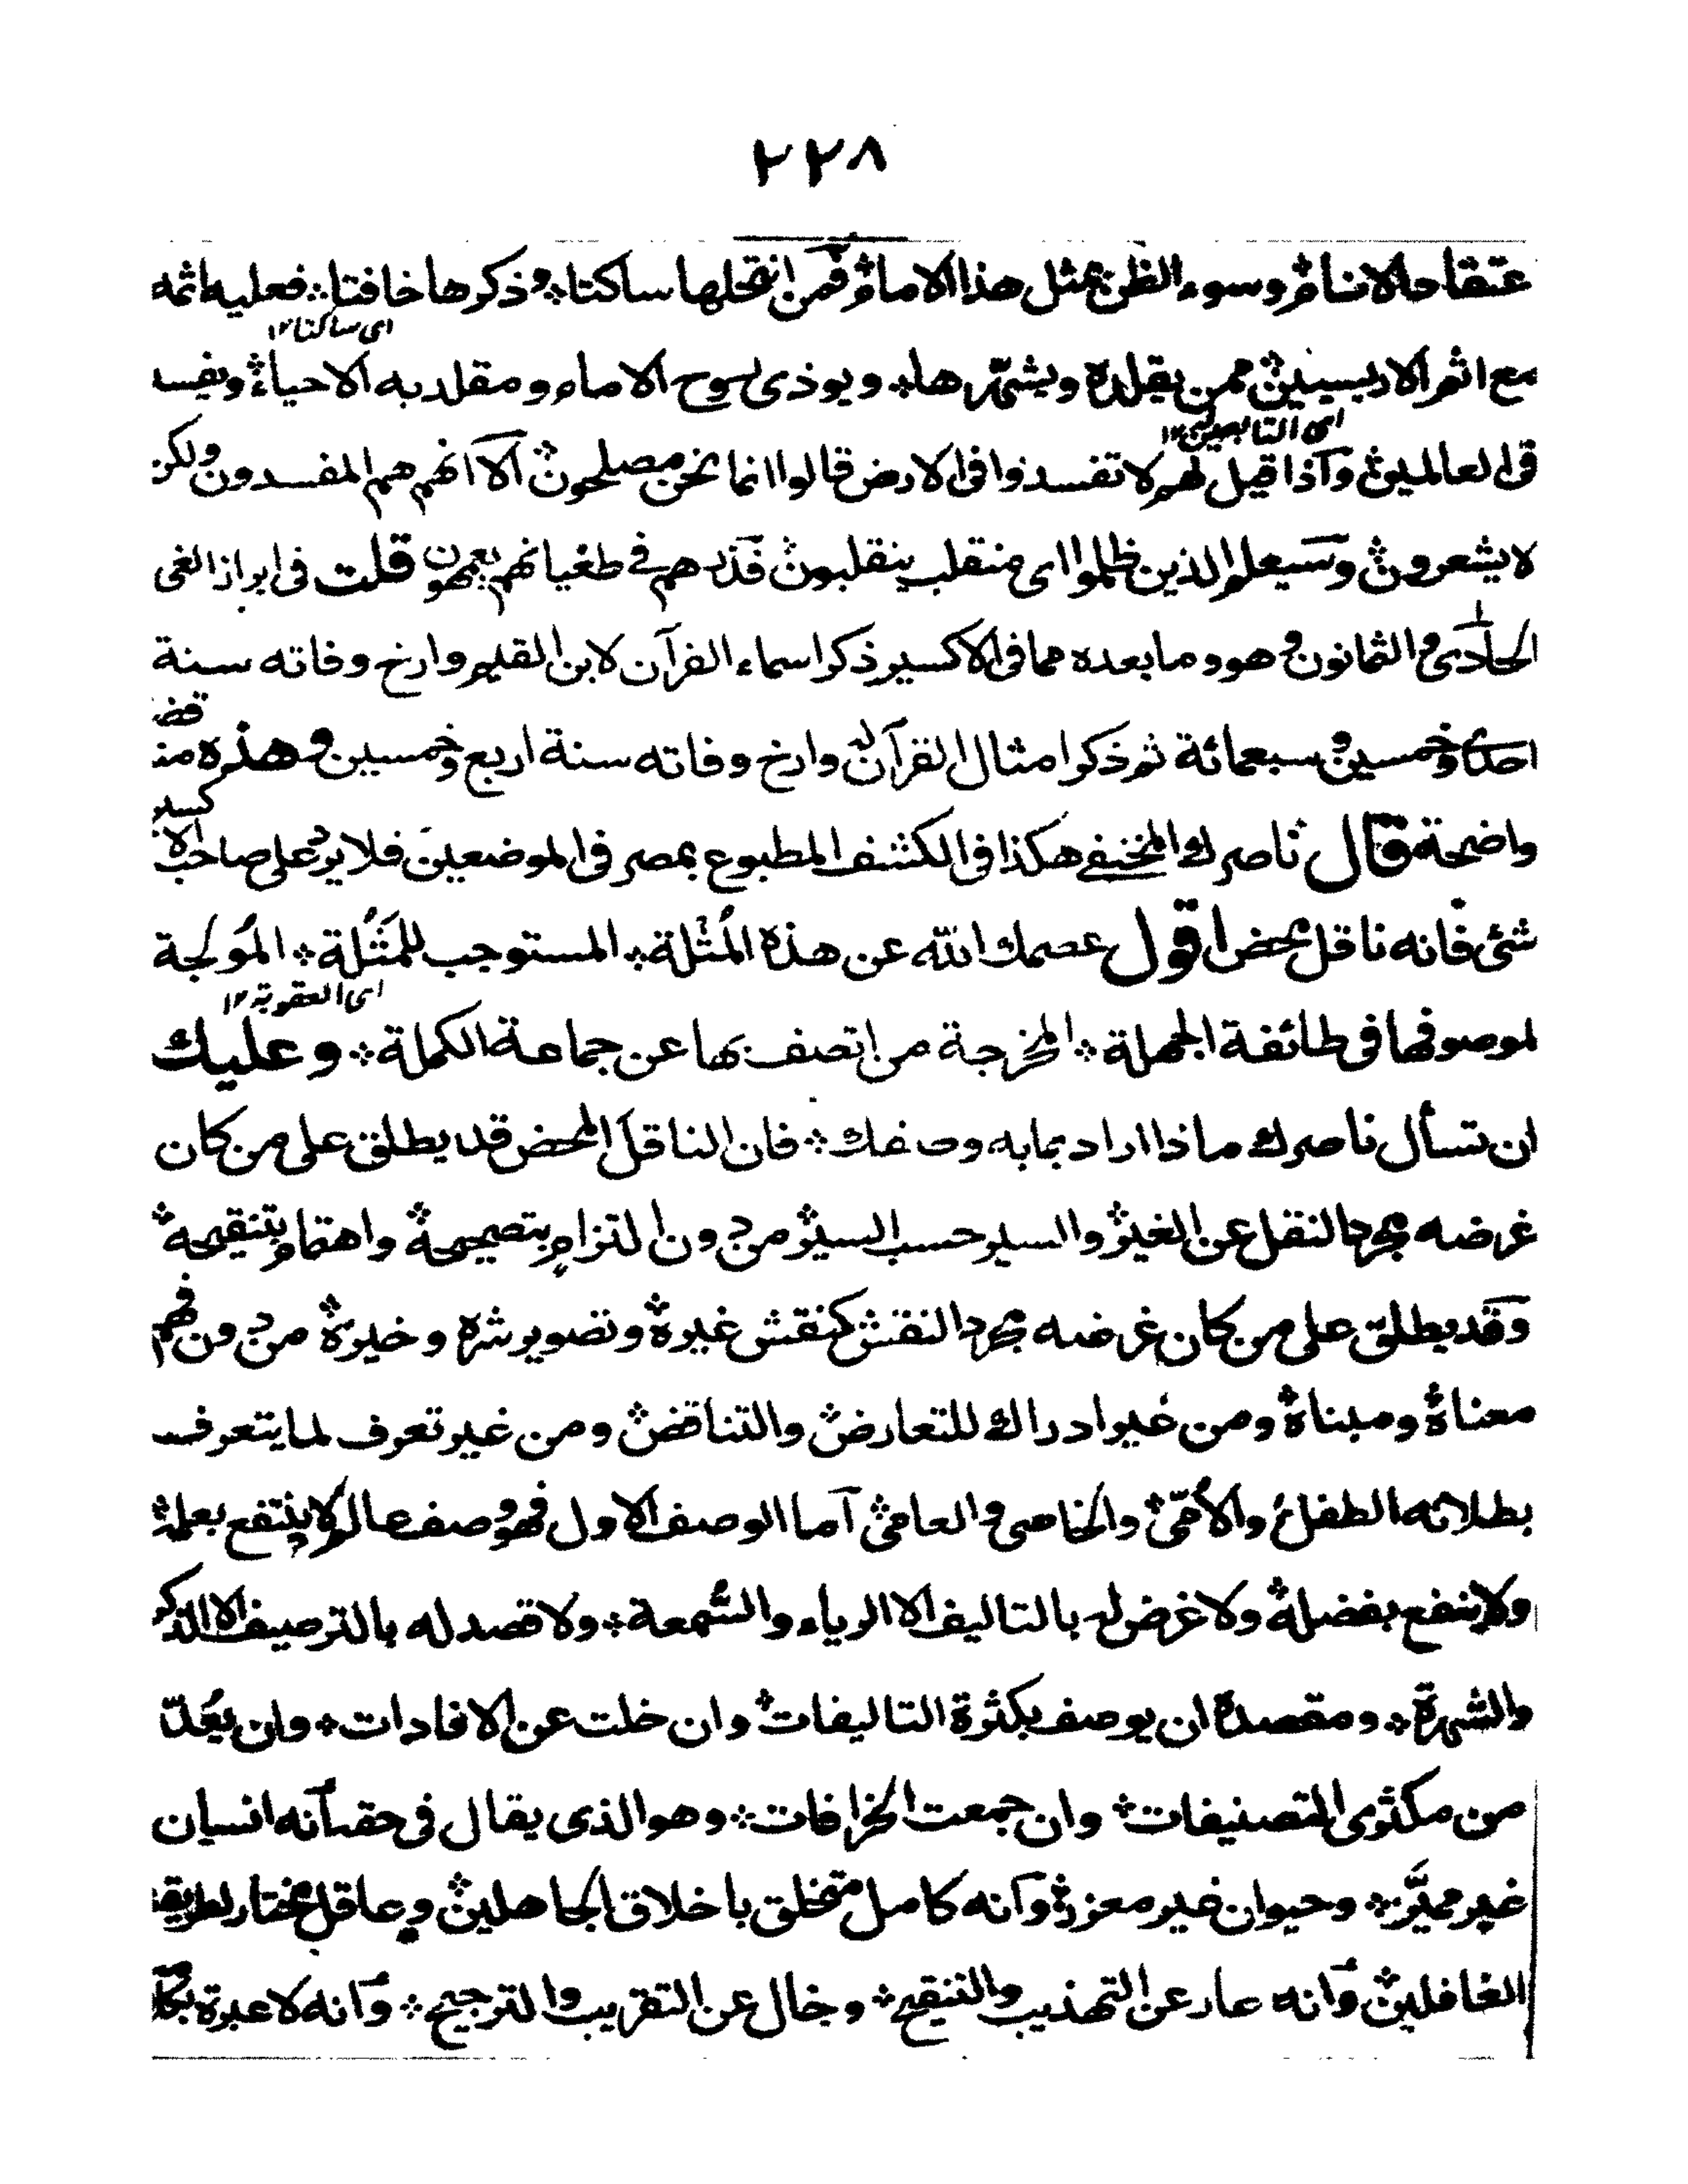 ٢٢٨
عتقاد حاد الانام وسوء الظن بمثل هذا الامام فمن انتحلها ساكتا وذكرها خافتا فعليه اثمه
اى ساكتا ١٢
مع اثم الاريسيين ممن يقلده ويشهرها ويوذى بسوح الاماء ومقلد به الاحياء ويفسد
اى التابعين ١٢
فى العالمين وآذا قيل لهم لا تفسدوا فى الارض قالوا انما نحن مصلحون آلا انهم هم المفسدون ولكن
لا يشعرون وسيعلم الذين ظلموا اى منقلب ينقلبون فذرهم فى طغيانهم يعمهون قلت فى ابراز الغى
الحادى والثمانون وهو وما بعده مما فى الاكسير ذكر اسماء القرآن لابن القيم وارخ وفاته سنة
احدى وخمسين وسبعمائة ثم ذكر امثال القرآن له وارخ وفاته سنة اربع وخمسين وهذه مناقضة
واضحة قال ناصرك المختفى هكذا فى الكشف المطبوع بمصر فى الموضعين فلا يرد على صاحب الاكسير
شئ فانه ناقل محض اقول عصمك الله عن هذه المُثلة المستوجب للمَثُلة المُولجة
اى العقوبة ١٢
لموصوفها فى طائفة الجهلة المخرجة من اتصف بها عن جماعة الكملة وعليك
ان تسأل ناصرك ماذا اراد بما به وصفك فان الناقل المحض قد يطلق على من كان
غرضه مجرد النقل عن الغير والسير حسب السير من دون التزام بتصحيحه واهتمام بتنقيحه
وقد يطلق على من كان غرضه مجرد النقش كنقش غيره وتصوير شره وخيره من دون فهم
معناه ومبناه ومن غير ادراك للتعارض والتناقض ومن غير تعرف لما يتعرف
بطلانه الطفل والأمّى والخاصى والعامى آما الوصف الاول فهو وصف عالم لا ينتفع بعلمه
ولا ينفع بفضله ولا غرض له بالتاليف الا الرياء والسُّمعة ولا قصد له بالترصيف الا الذكر
والشهرة ومقصده ان يوصف بكثرة التاليفات وان خلت عن الافادات وان يُعدّ
من مكثرى التصنيفات وان جمعت الخرافات وهو الذى يقال فى حقه آنه انسان
غير مميَّز وحيوان غير معزز وآنه كامل متخلق باخلاق الجاهلين وعاقل مختار لطريقة
الغافلين وآنه عار عن التهذيب والتنقيح وخال عن التقريب والترجيح وآنه لا عبرة